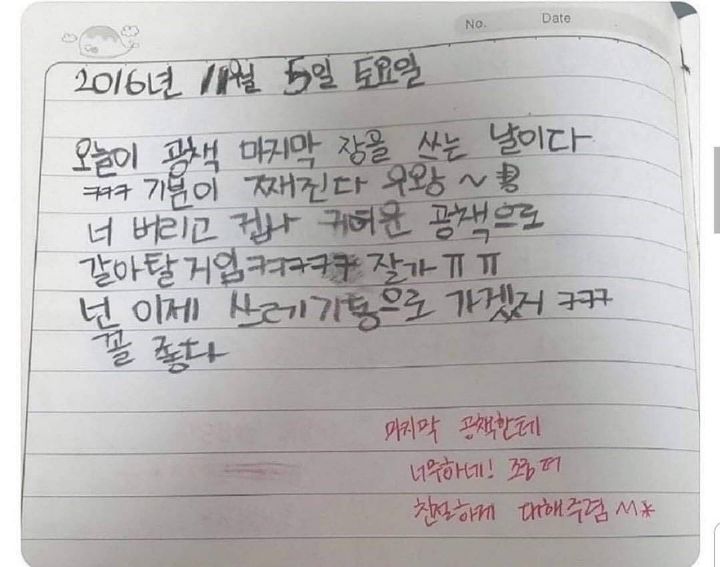 No.
Date
2016년 11월 5일 토요일
오늘이 공책 마지막 장을 쓰는 날이다
ㅋㅋㅋ 기분이 째진다 우왕~
너 버리고 겁나 귀여운 공책으로
갈아탈거임 ㅋㅋㅋㅋㅋ 잘가 ㅠㅠ
넌 이제 쓰레기통으로 가겠지 ㅋㅋㅋ
꼴 좋다
마지막 공책한테
너무하네! 조금 더
친절하게 대해주렴 ^^*